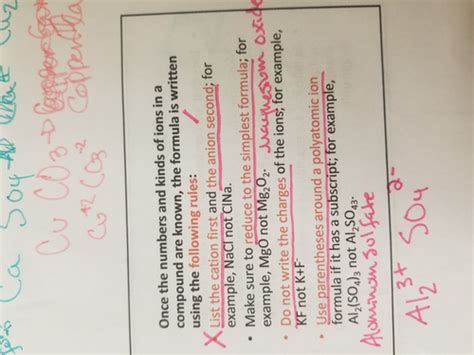 Ca SO4
Cu CO3
Cu+2 CO3-2
Once the numbers and kinds of ions in a
compound are known, the formula is written
using the following rules:
X List the cation first and the anion second; for
example, NaCl not ClNa.
• Make sure to reduce to the simplest formula; for
example, MgO not Mg2O2. Magnesium oxide
• Do not write the charges of the ions; for example,
KF not K+F-
• Use parentheses around a polyatomic ion
formula if it has a subscript; for example,
Al2(SO4)3 not Al2SO43.
Aluminum sulfate
Al2 3+ SO4 2-